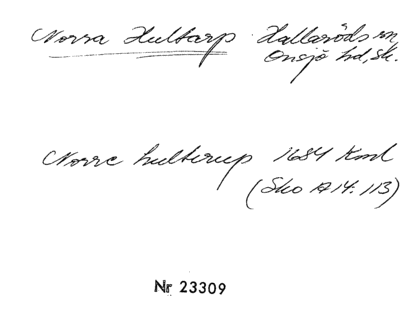 Norra Hultarp Hallaröds sn
Onsjö hd, Sk.
Norre hulterup 1684 Kml
(Sko A14:113)
Nr 23309